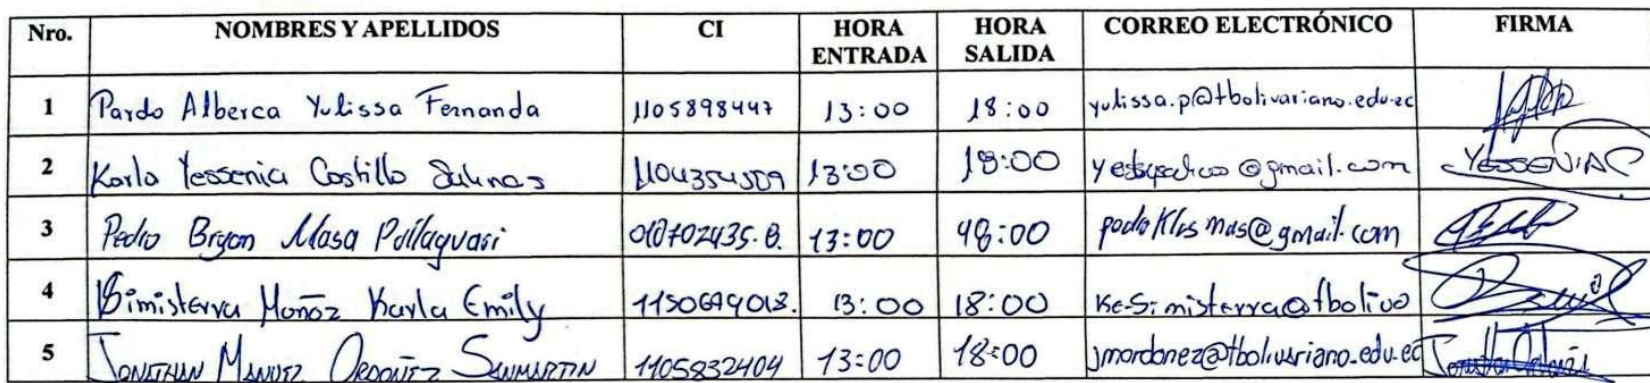 Nro. NOMBRES Y APELLIDOS CI HORA ENTRADA HORA SALIDA CORREO ELECTRÓNICO FIRMA
1 Pardo Alberca Yulissa Fernanda 1105898447 13:00 18:00 yulissa.p@tbolivariano.edu.ec
2 Karla Yessenia Castillo 13:00 18:00 @gmail.com YESSENIA
3 Pedro Bryan Masa Pullaguari 13:00 18:00 @gmail.com
4 Simisterra Muñoz Karla Emily 13:00 18:00 Ke-Simisterra@tboliva
5 JONATHAN MANUEL ORDOÑEZ SANMARTIN 1105832404 13:00 18:00 jmordonez@tbolivariano.edu.ec